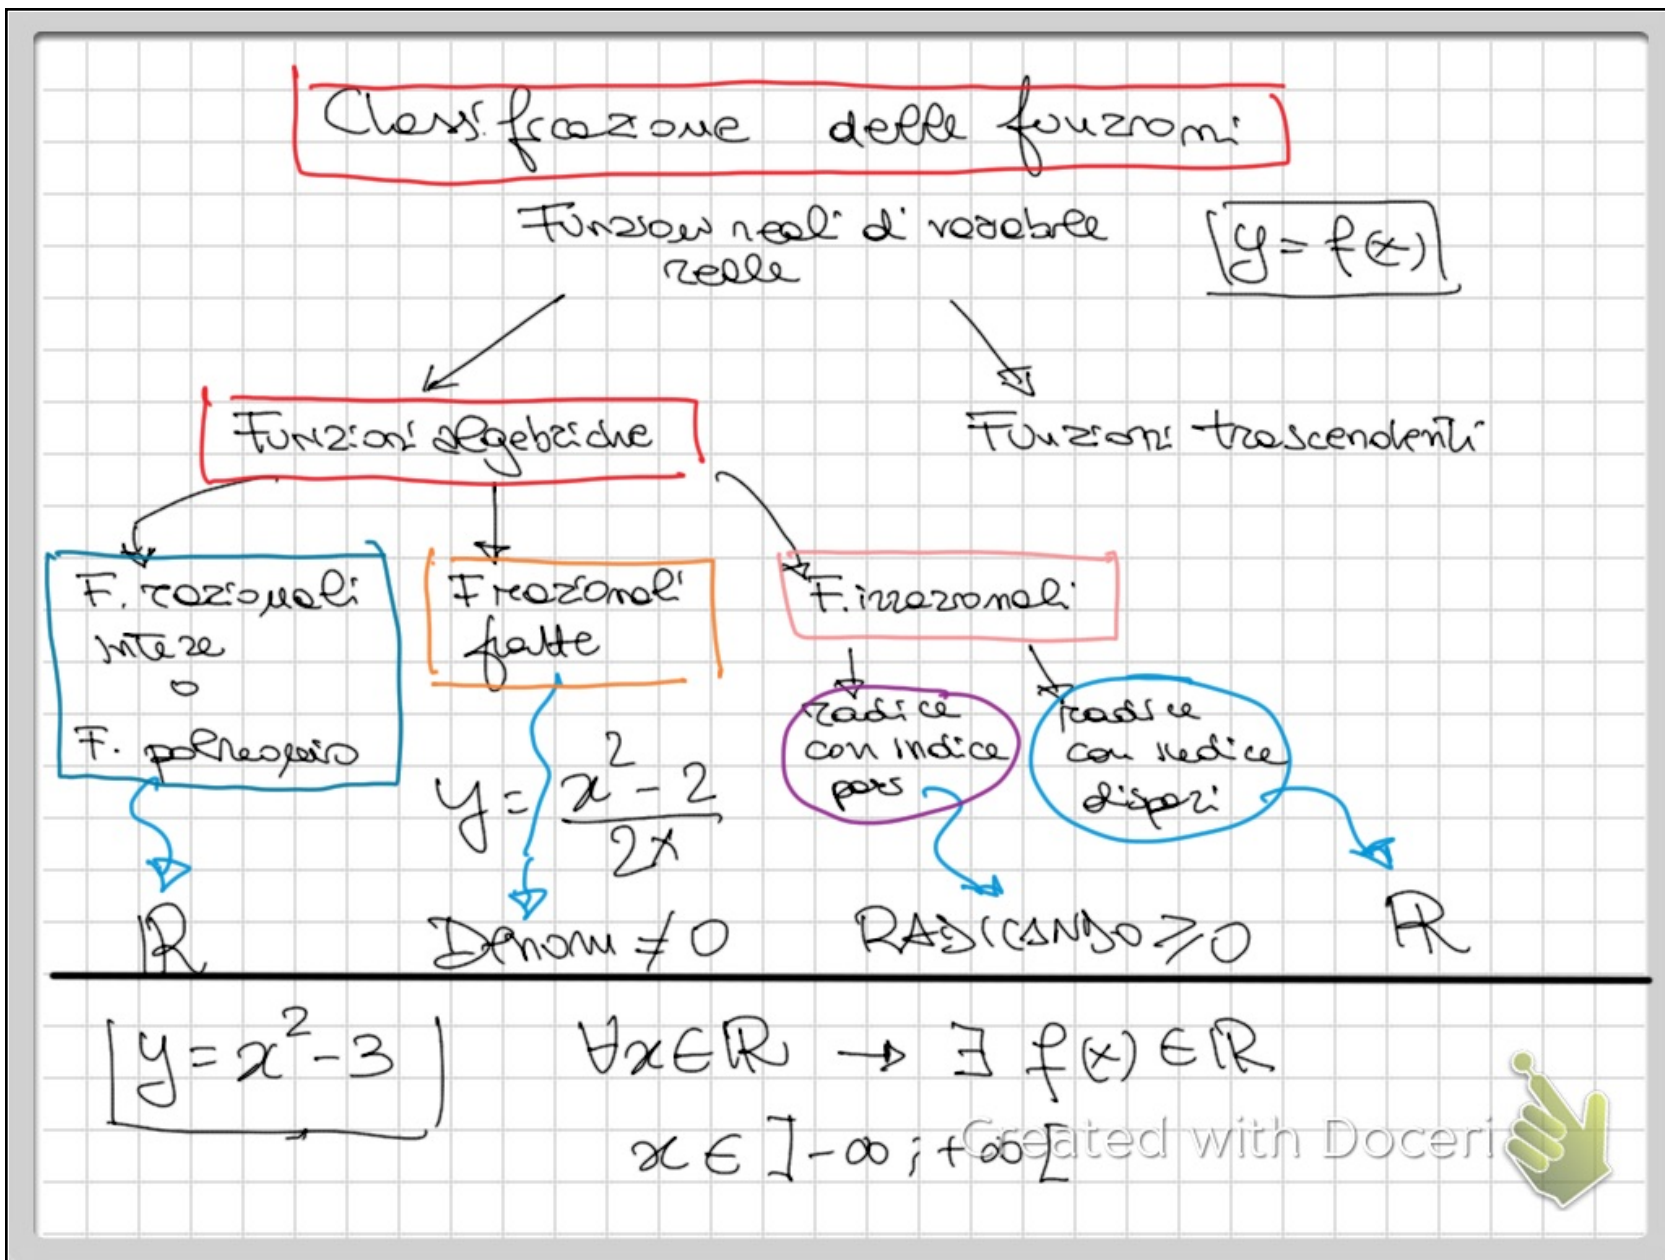 Classificazione delle funzioni
Funzioni reali di variabile
reale
y = f(x)
Funzioni algebriche
Funzioni trascendenti
F. razionali
intere
o
F. polinomio
F razionali
fratte
F. irrazionali
radice
con indice
pari
radice
con indice
dispari
y = x² - 2 / 2x
ℝ
Denom ≠ 0
RADICANDO ≥ 0
ℝ
y = x² - 3
∀x∈ℝ → ∃ f(x) ∈ ℝ
x ∈ ]-∞; +∞[
Created with Doceri